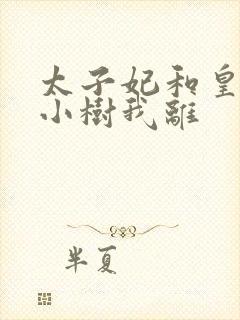 太子妃和皇
小樹我離
半夏